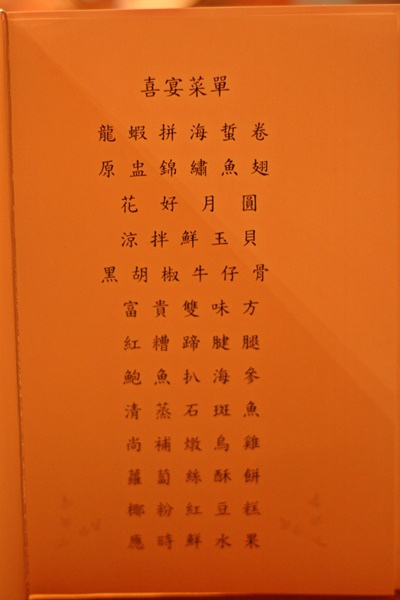 喜宴菜單
龍蝦拼海蜇卷
原盅錦繡魚翅
花好月圓
涼拌鮮玉貝
黑胡椒牛仔骨
富貴雙味方
紅糟蹄腱腿
鮑魚扒海參
清蒸石斑魚
尚補燉烏雞
蘿蔔絲酥餅
椰粉紅豆糕
應時鮮水果